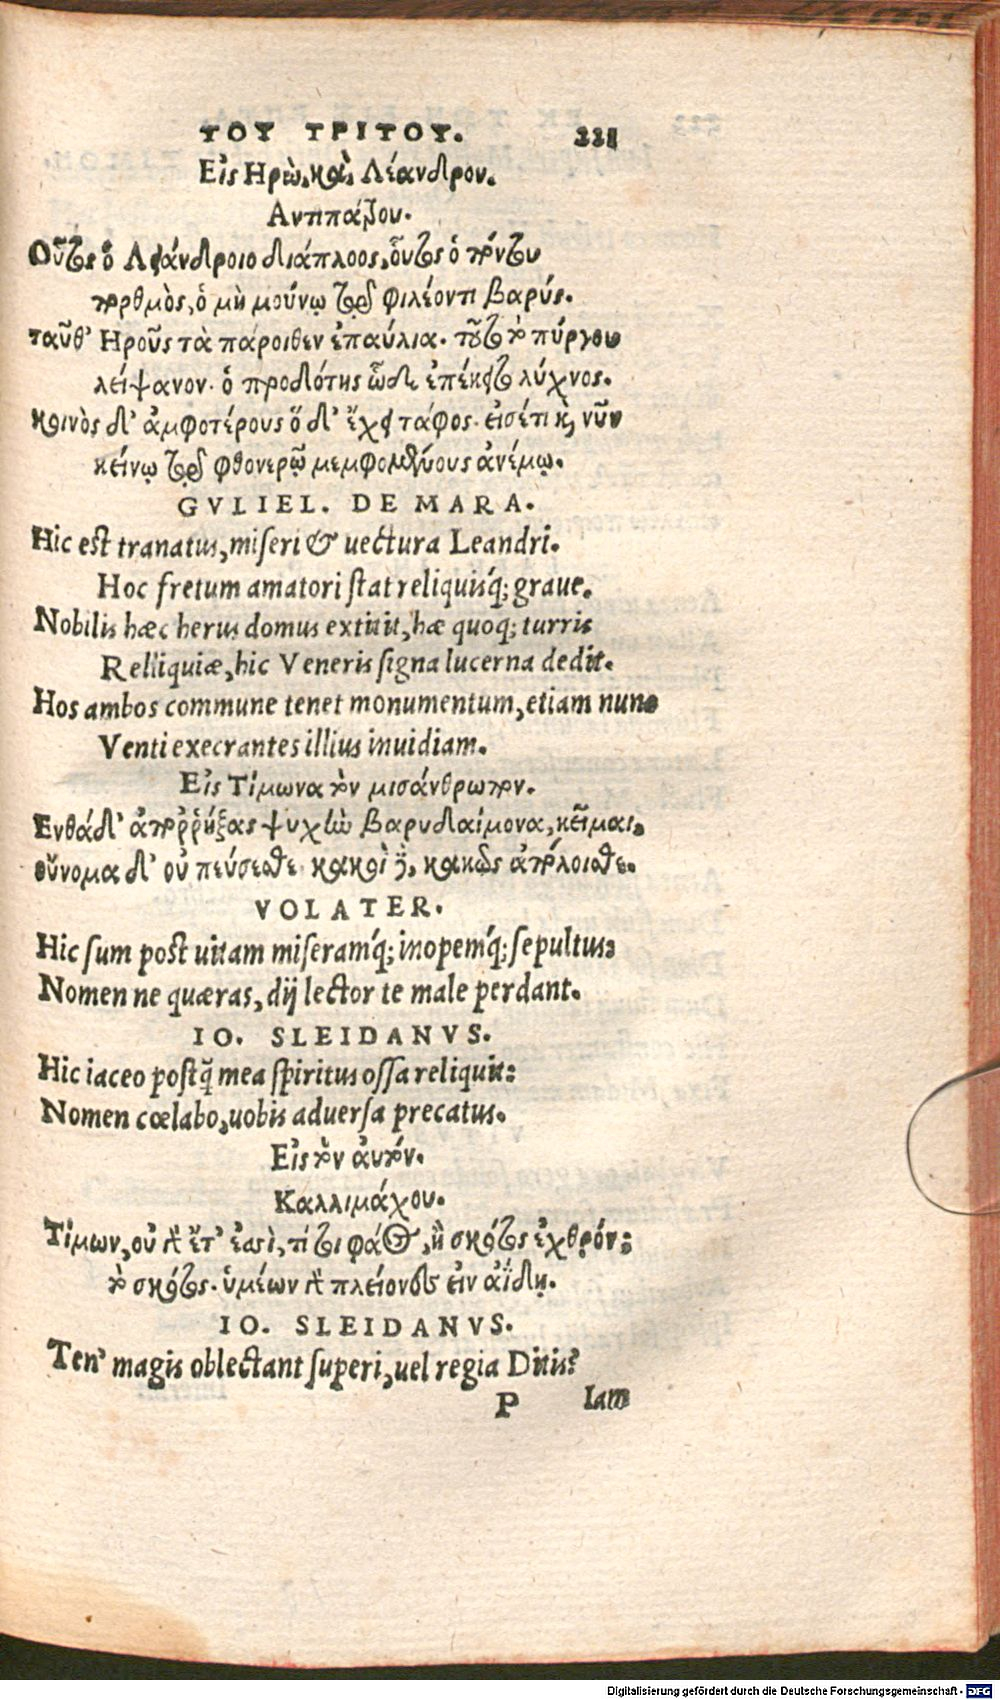 ΤΟΥ ΤΡΙΤΟΥ. 221
Εἰς Ηρὼ, καὶ Λέανδρον.
Αντιπάτρου.
Οὗτος ὁ Λειάνδροιο διάπλοος, οὗτος ὁ πόντου
πορθμὸς, ὁ μὴ μούνῳ τῷ φιλέοντι βαρύς.
ταῦθ' Ηροῦς τὰ πάροιθεν ἐπαύλια. τοῦτο τὸ πύργου
λείψανον. ὁ προδότης ὧδε ἐπέκειτο λύχνος.
κοινὸς δ' ἀμφοτέρους ὅδ' ἔχει τάφος. εἰσέτι καὶ νῦν
κείνῳ τῷ φθονερῷ μεμφομένους ἀνέμῳ.
GVLIEL. DE MARA.
Hic est tranatus, miseri & uectura Leandri.
Hoc fretum amatori stat reliquisq; graue.
Nobilis hæc herus domus extitit, hæ quoq; turris
Relliquiæ, hic Veneris signa lucerna dedit.
Hos ambos commune tenet monumentum, etiam nunc
Venti execrantes illius inuidiam.
Εἰς Τίμωνα τὸν μισάνθρωπον.
Ενθάδ' ἀποῤῥήξας ψυχὴν βαρυδαίμονα, κεῖμαι.
οὔνομα δ' οὐ πεύσεσθε κακοὶ δὲ, κακῶς ἀπόλοισθε.
VOLATER.
Hic sum post uitam miseramq́; inopemq́; sepultus:
Nomen ne quæras, dij lector te male perdant.
IO. SLEIDANVS.
Hic iaceo postq̃ mea spiritus ossa reliquit:
Nomen cœlabo, uobis aduersa precatus.
Εἰς τὸν αὐτόν.
Καλλιμάχου.
Τίμων, οὐ γὰρ ἔτ' ἐσσὶ, τί τοι φάος, ἢ σκότος ἐχθρόν;
τὸ σκότος. ὑμέων γὰρ πλείονες εἰν ἀΐδῃ.
IO. SLEIDANVS.
Ten' magis oblectant superi, uel regia Ditis?
P Iam
Digitalisierung gefördert durch die Deutsche Forschungsgemeinschaft - DFG